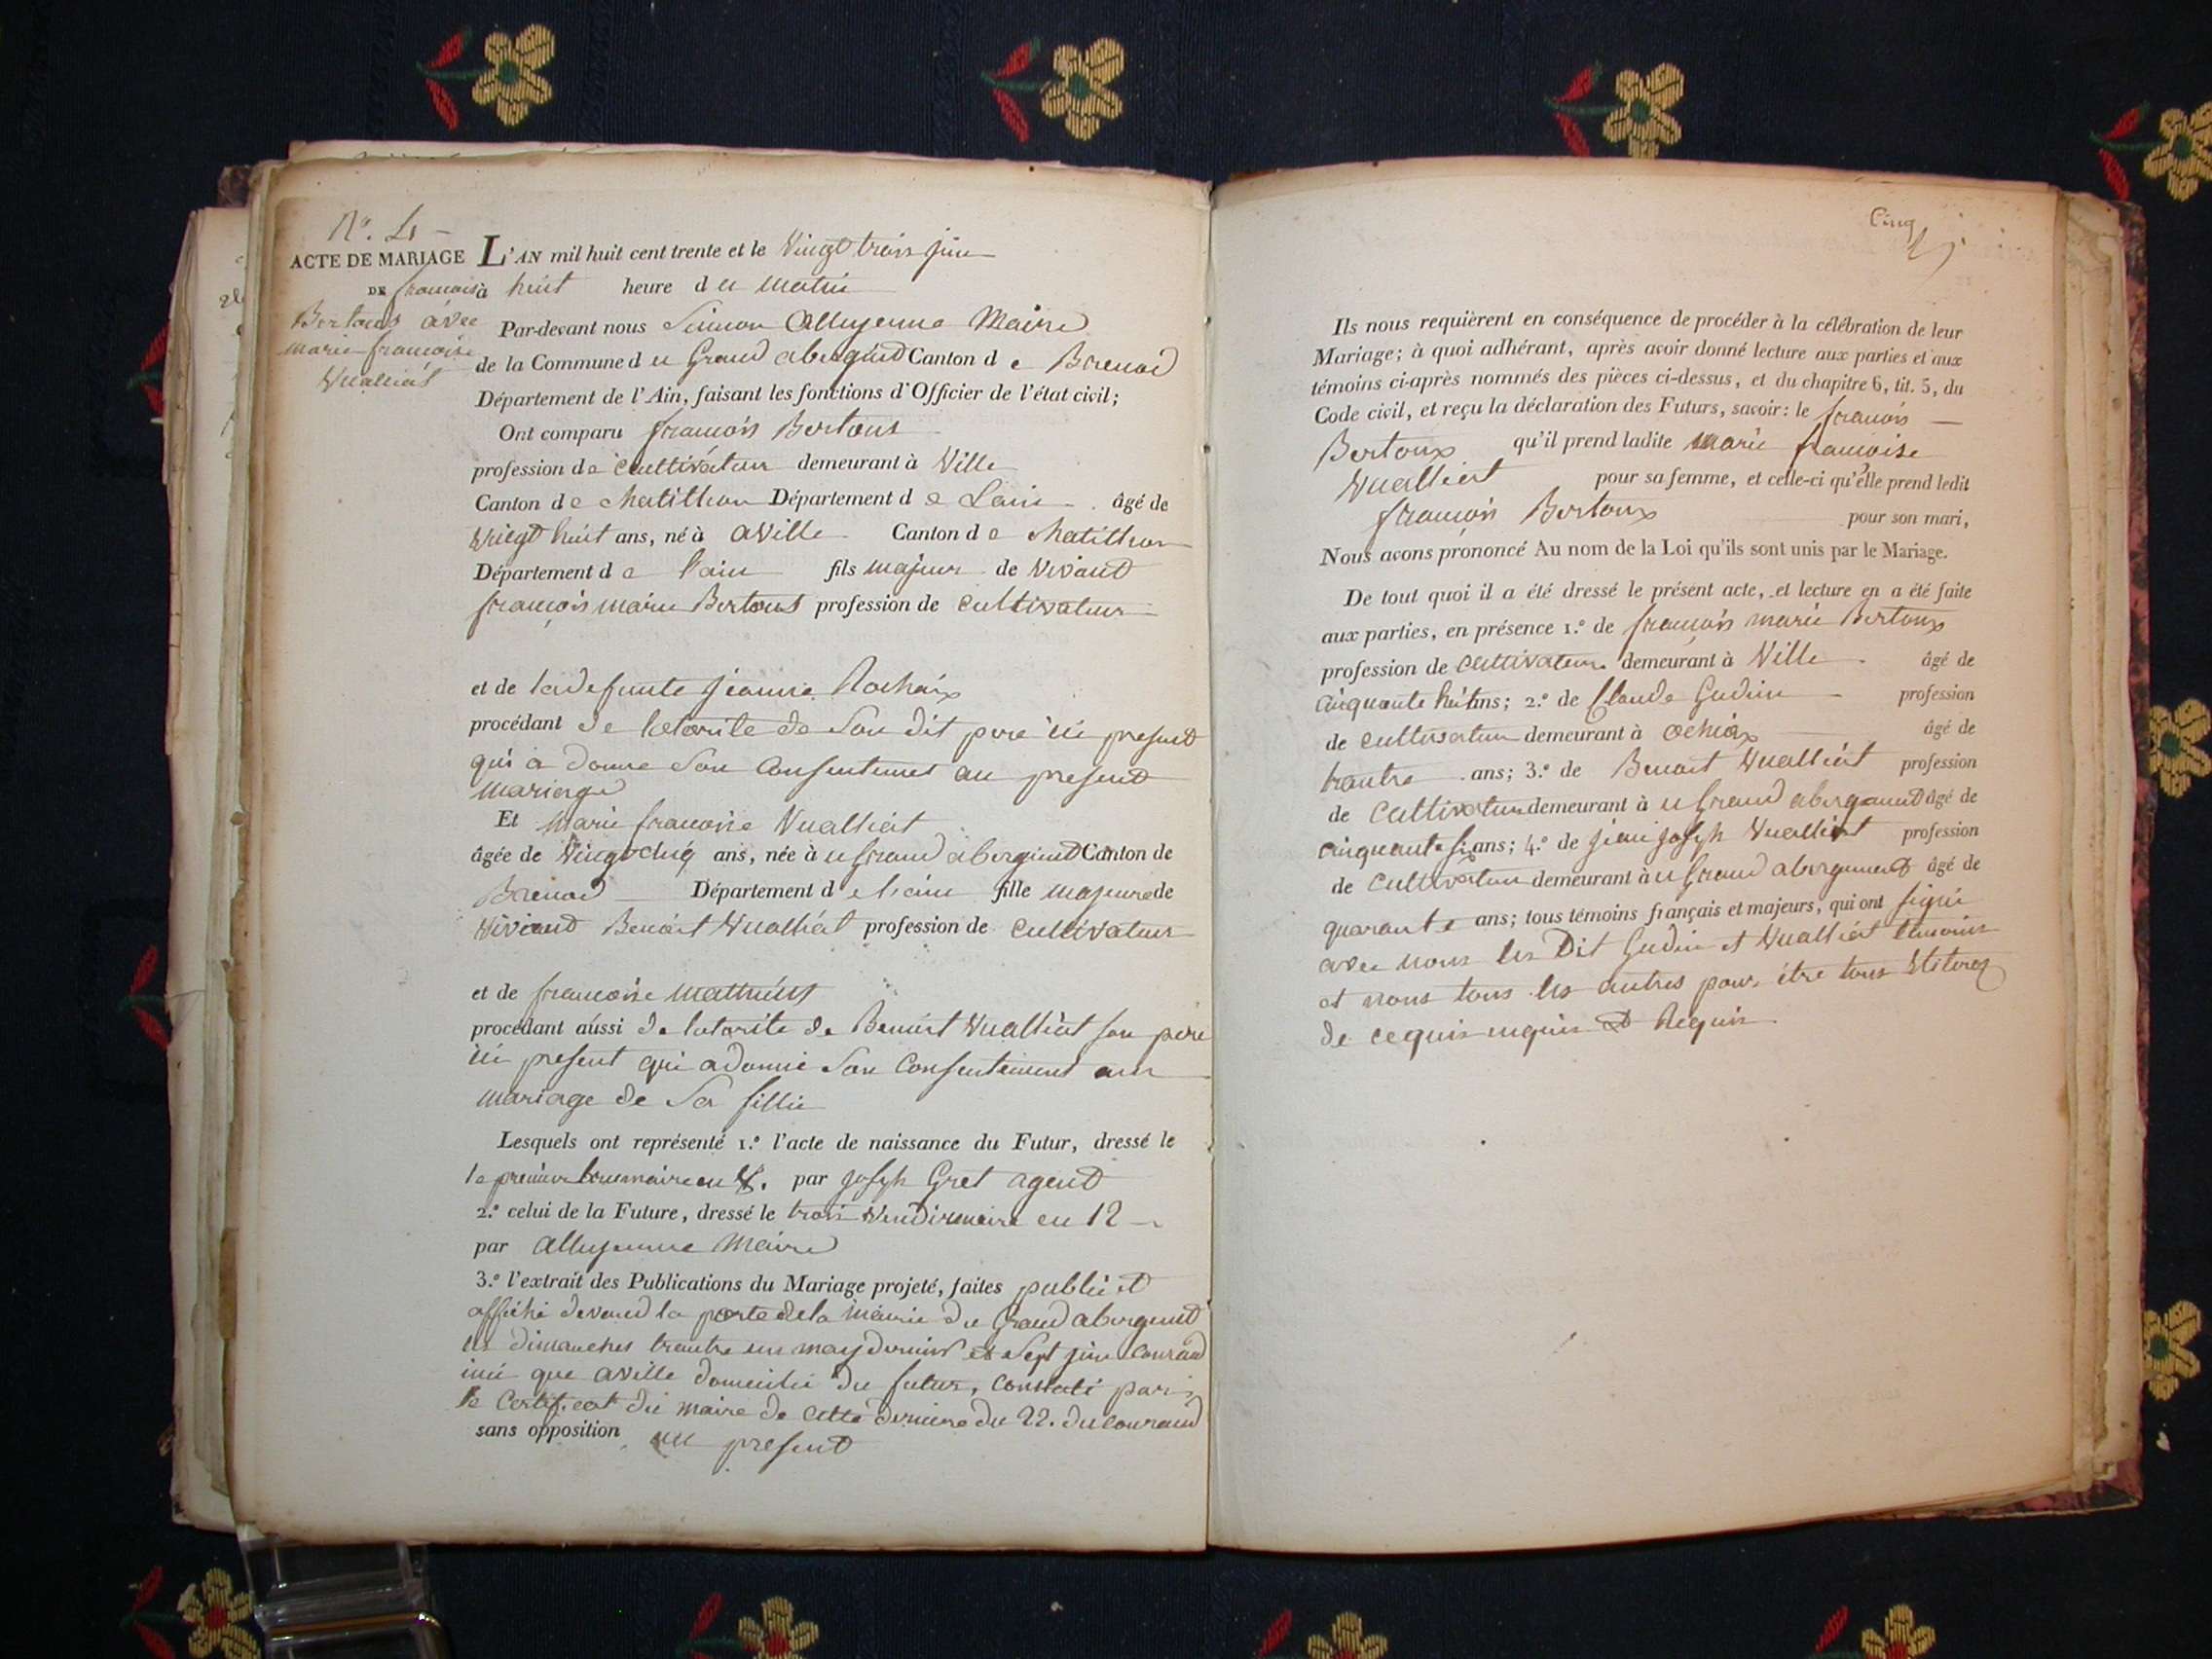 N.o 4
ACTE DE MARIAGE
DE françois
Bertoux avec
marie françoise
Vualliat
L'AN mil huit cent trente et le Vingt trois juin
à huit heure du matin
Par-devant nous Simon Alleyenne Maire
de la Commune du Grand abergment Canton de Brenod
Département de l'Ain, faisant les fonctions d'Officier de l'état civil;
Ont comparu françois Bertoux
profession de cultivateur demeurant à Ville
Canton de chatillion Département de Lain âgé de
Vingt huit ans, né à aville Canton de chatillion
Département de lain fils majeur de Vivant
françois marie Bertoux profession de cultivateur
et de la defunte jeanne Rochaix
procédant de lotorite de Son dit pere ici present
qui a donne Son Consentement au present
mariage
Et marie françoise Vualliat
âgée de Vingt cinq ans, née à u grand abergment Canton de
Brenod Département de l'ain fille majeure de
Vivand Benoit Vualliat profession de cultivateur
et de françoise
procédant aussi de lotorite de Benoit Vualliat son pere
ici present qui a donné Son Consentement au
mariage de Sa fillie
Lesquels ont représenté 1.º l'acte de naissance du Futur, dressé le
le premier brumaire an par joseph Gret agent
2.º celui de la Future, dressé le trois Vendimiaire en 12
par Alleyenne Maire
3.º l'extrait des Publications du Mariage projeté, faites publié et
affiché devand la porte de la mairie du Grand abergment
les dimanches trante un may dernier et Sept juin courand
insi que aville domicilie du futur, constaté par
le Certificat du maire de cette derniere du 22. du courand
sans opposition au present
Cinq
5
Ils nous requièrent en conséquence de procéder à la célébration de leur
Mariage; à quoi adhérant, après avoir donné lecture aux parties et aux
témoins ci-après nommés des pièces ci-dessus, et du chapitre 6, tit. 5, du
Code civil, et reçu la déclaration des Futurs, savoir: le françois
Bertoux qu'il prend ladite marie françoise
Vualliat pour sa femme, et celle-ci qu'elle prend ledit
françois Bertoux pour son mari,
Nous avons prononcé Au nom de la Loi qu'ils sont unis par le Mariage.
De tout quoi il a été dressé le présent acte, et lecture en a été faite
aux parties, en présence 1.º de françois marie Bertoux
profession de cultivateur demeurant à Ville âgé de
cinquante huit ans; 2.º de Claude Gudin profession
de cultivateur demeurant à ochiax âgé de
trantre ans; 3.º de Benoit Vualliat profession
de cultivateur demeurant à u Grand abergment âgé de
cinquante six ans; 4.º de jean joseph Vualliat profession
de cultivateur demeurant à u Grand abergment âgé de
quarante ans; tous témoins français et majeurs, qui ont signé
avec nous les Dit Gudin et Vualliat temoins
et nous tous les autres pour être tous
de ce quis enquis et Requis